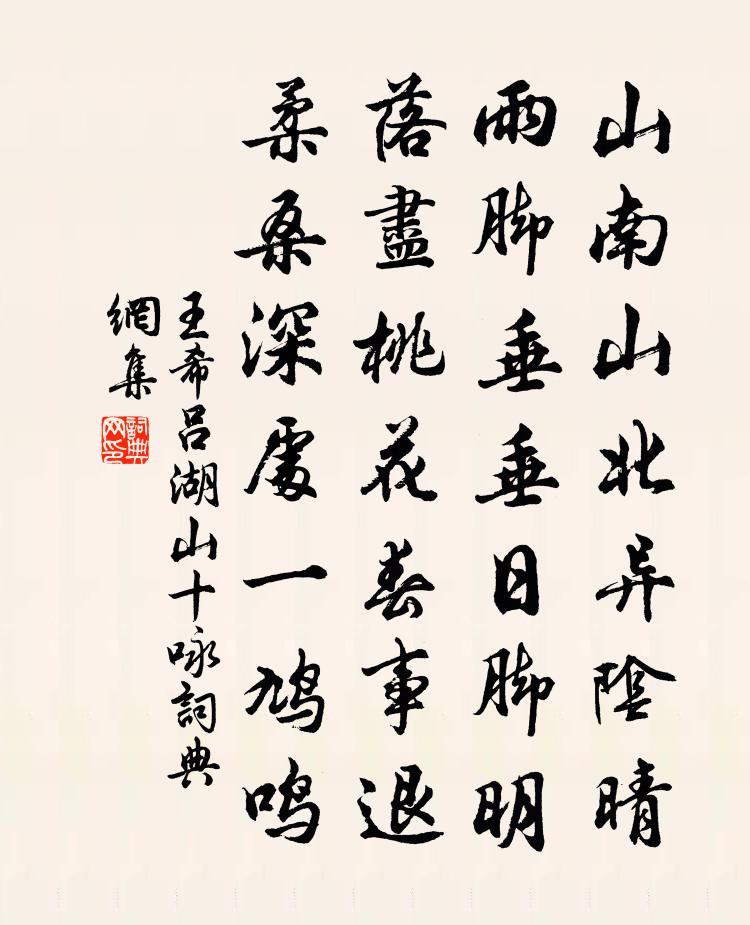 山南山北异陰晴
雨脚垂垂日脚明
落盡桃花春事退
柔桑深處一鸠鸣
王希吕湖山十咏詞典
網集
詞典
网印